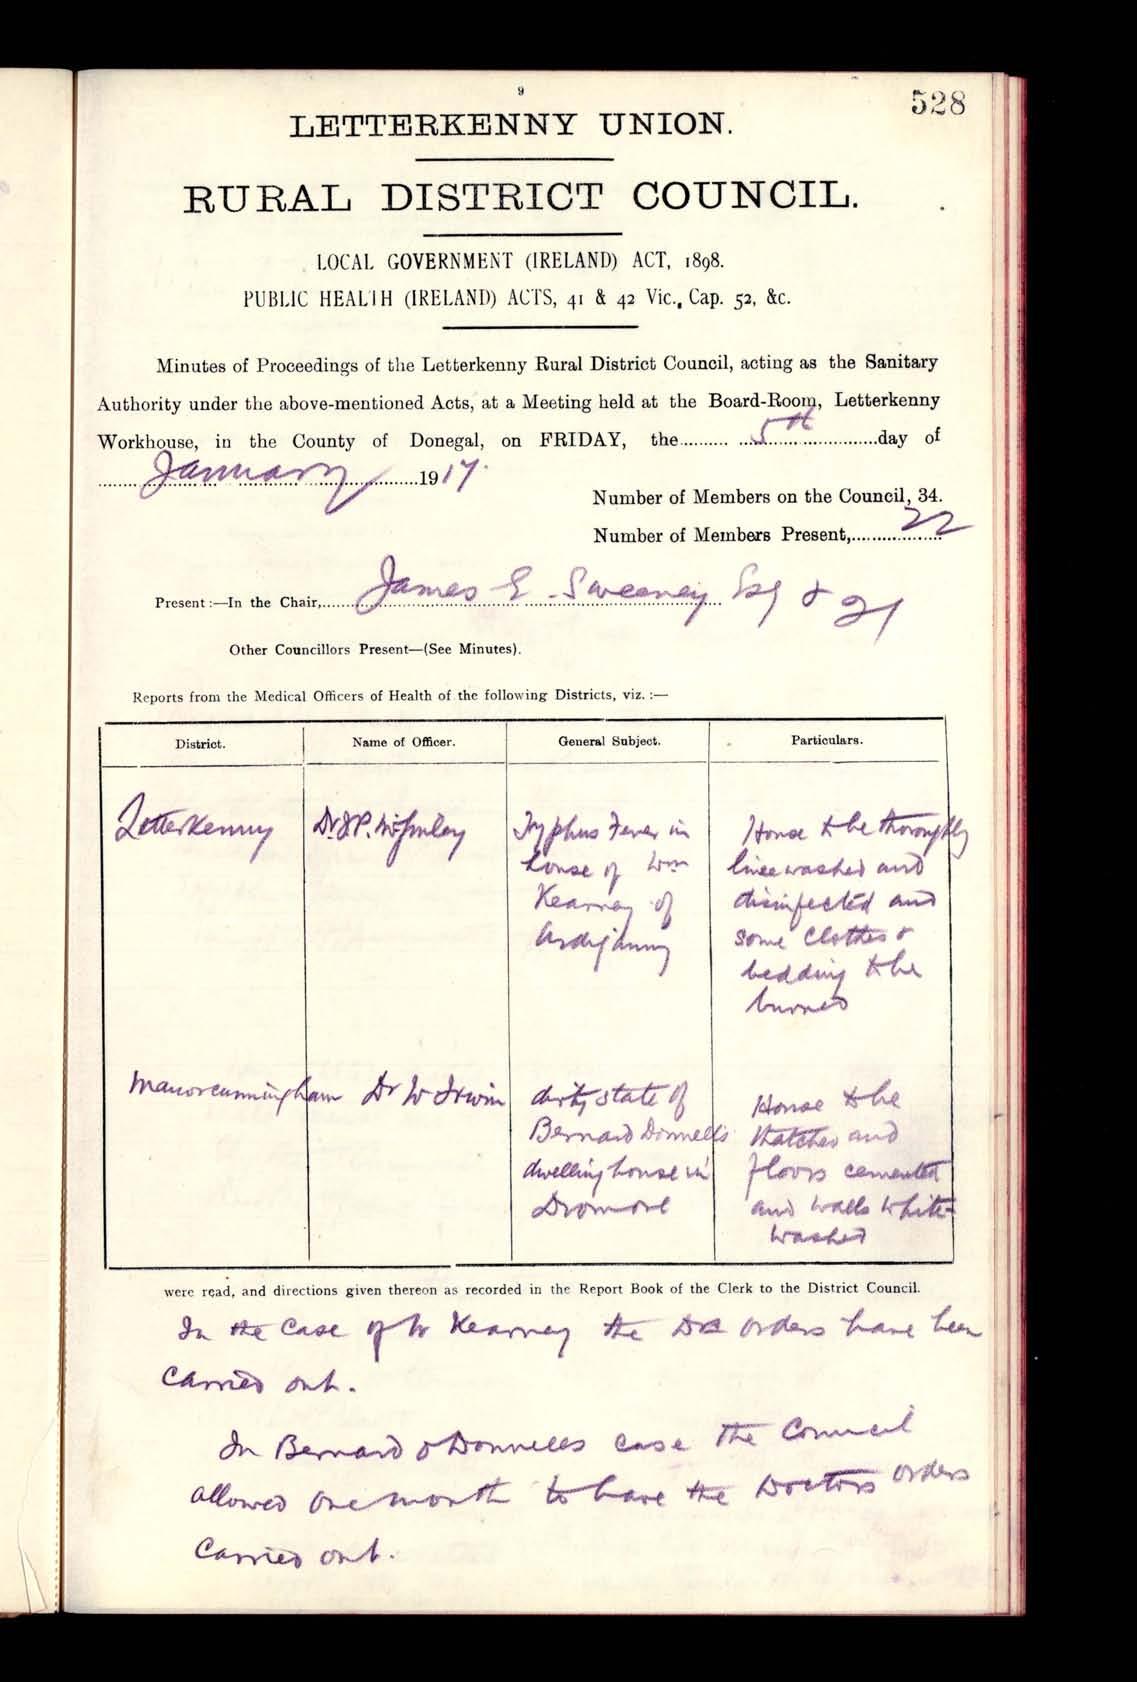 9
528
LETTERKENNY UNION.
RURAL DISTRICT COUNCIL.
LOCAL GOVERNMENT (IRELAND) ACT, 1898.
PUBLIC HEALTH (IRELAND) ACTS, 41 & 42 Vic., Cap. 52, &c.
Minutes of Proceedings of the Letterkenny Rural District Council, acting as the Sanitary
Authority under the above-mentioned Acts, at a Meeting held at the Board-Room, Letterkenny
Workhouse, in the County of Donegal, on FRIDAY, the 5th day of
January 1917.
Number of Members on the Council, 34.
Number of Members Present, 22
Present:—In the Chair, James E Sweeney Esq & 21
Other Councillors Present—(See Minutes).
Reports from the Medical Officers of Health of the following Districts, viz. :—
District. Name of Officer. General Subject. Particulars.
Letterkenny
Dr J P. McGinley
Typhus Fever in
house of Wm
Kearney of
House to be thoroughly
limewashed and
disinfected and
some clothes &
bedding to be
burned
Manorcunningham
Dr W Irwin
dirty state of
Bernard Donnells
dwelling house in
Dromore
House to be
thatched and
floors cemented
and walls white-
washed
were read, and directions given thereon as recorded in the Report Book of the Clerk to the District Council.
In the case of W Kearney the Drs orders have been
carried out.
In Bernard O Donnells case the Council
allowed one month to have the Doctors orders
carried out.